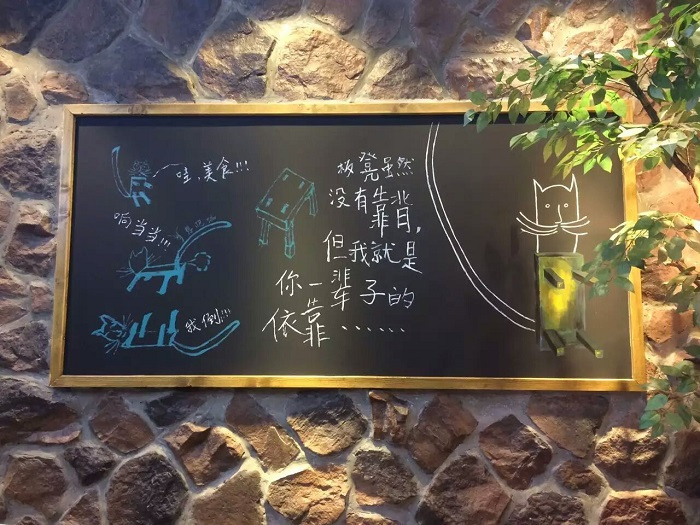 哇，美食!!!
响当当!!!
我倒!!!
板凳虽然
没有靠背，
但我就是
你一辈子的
依靠……